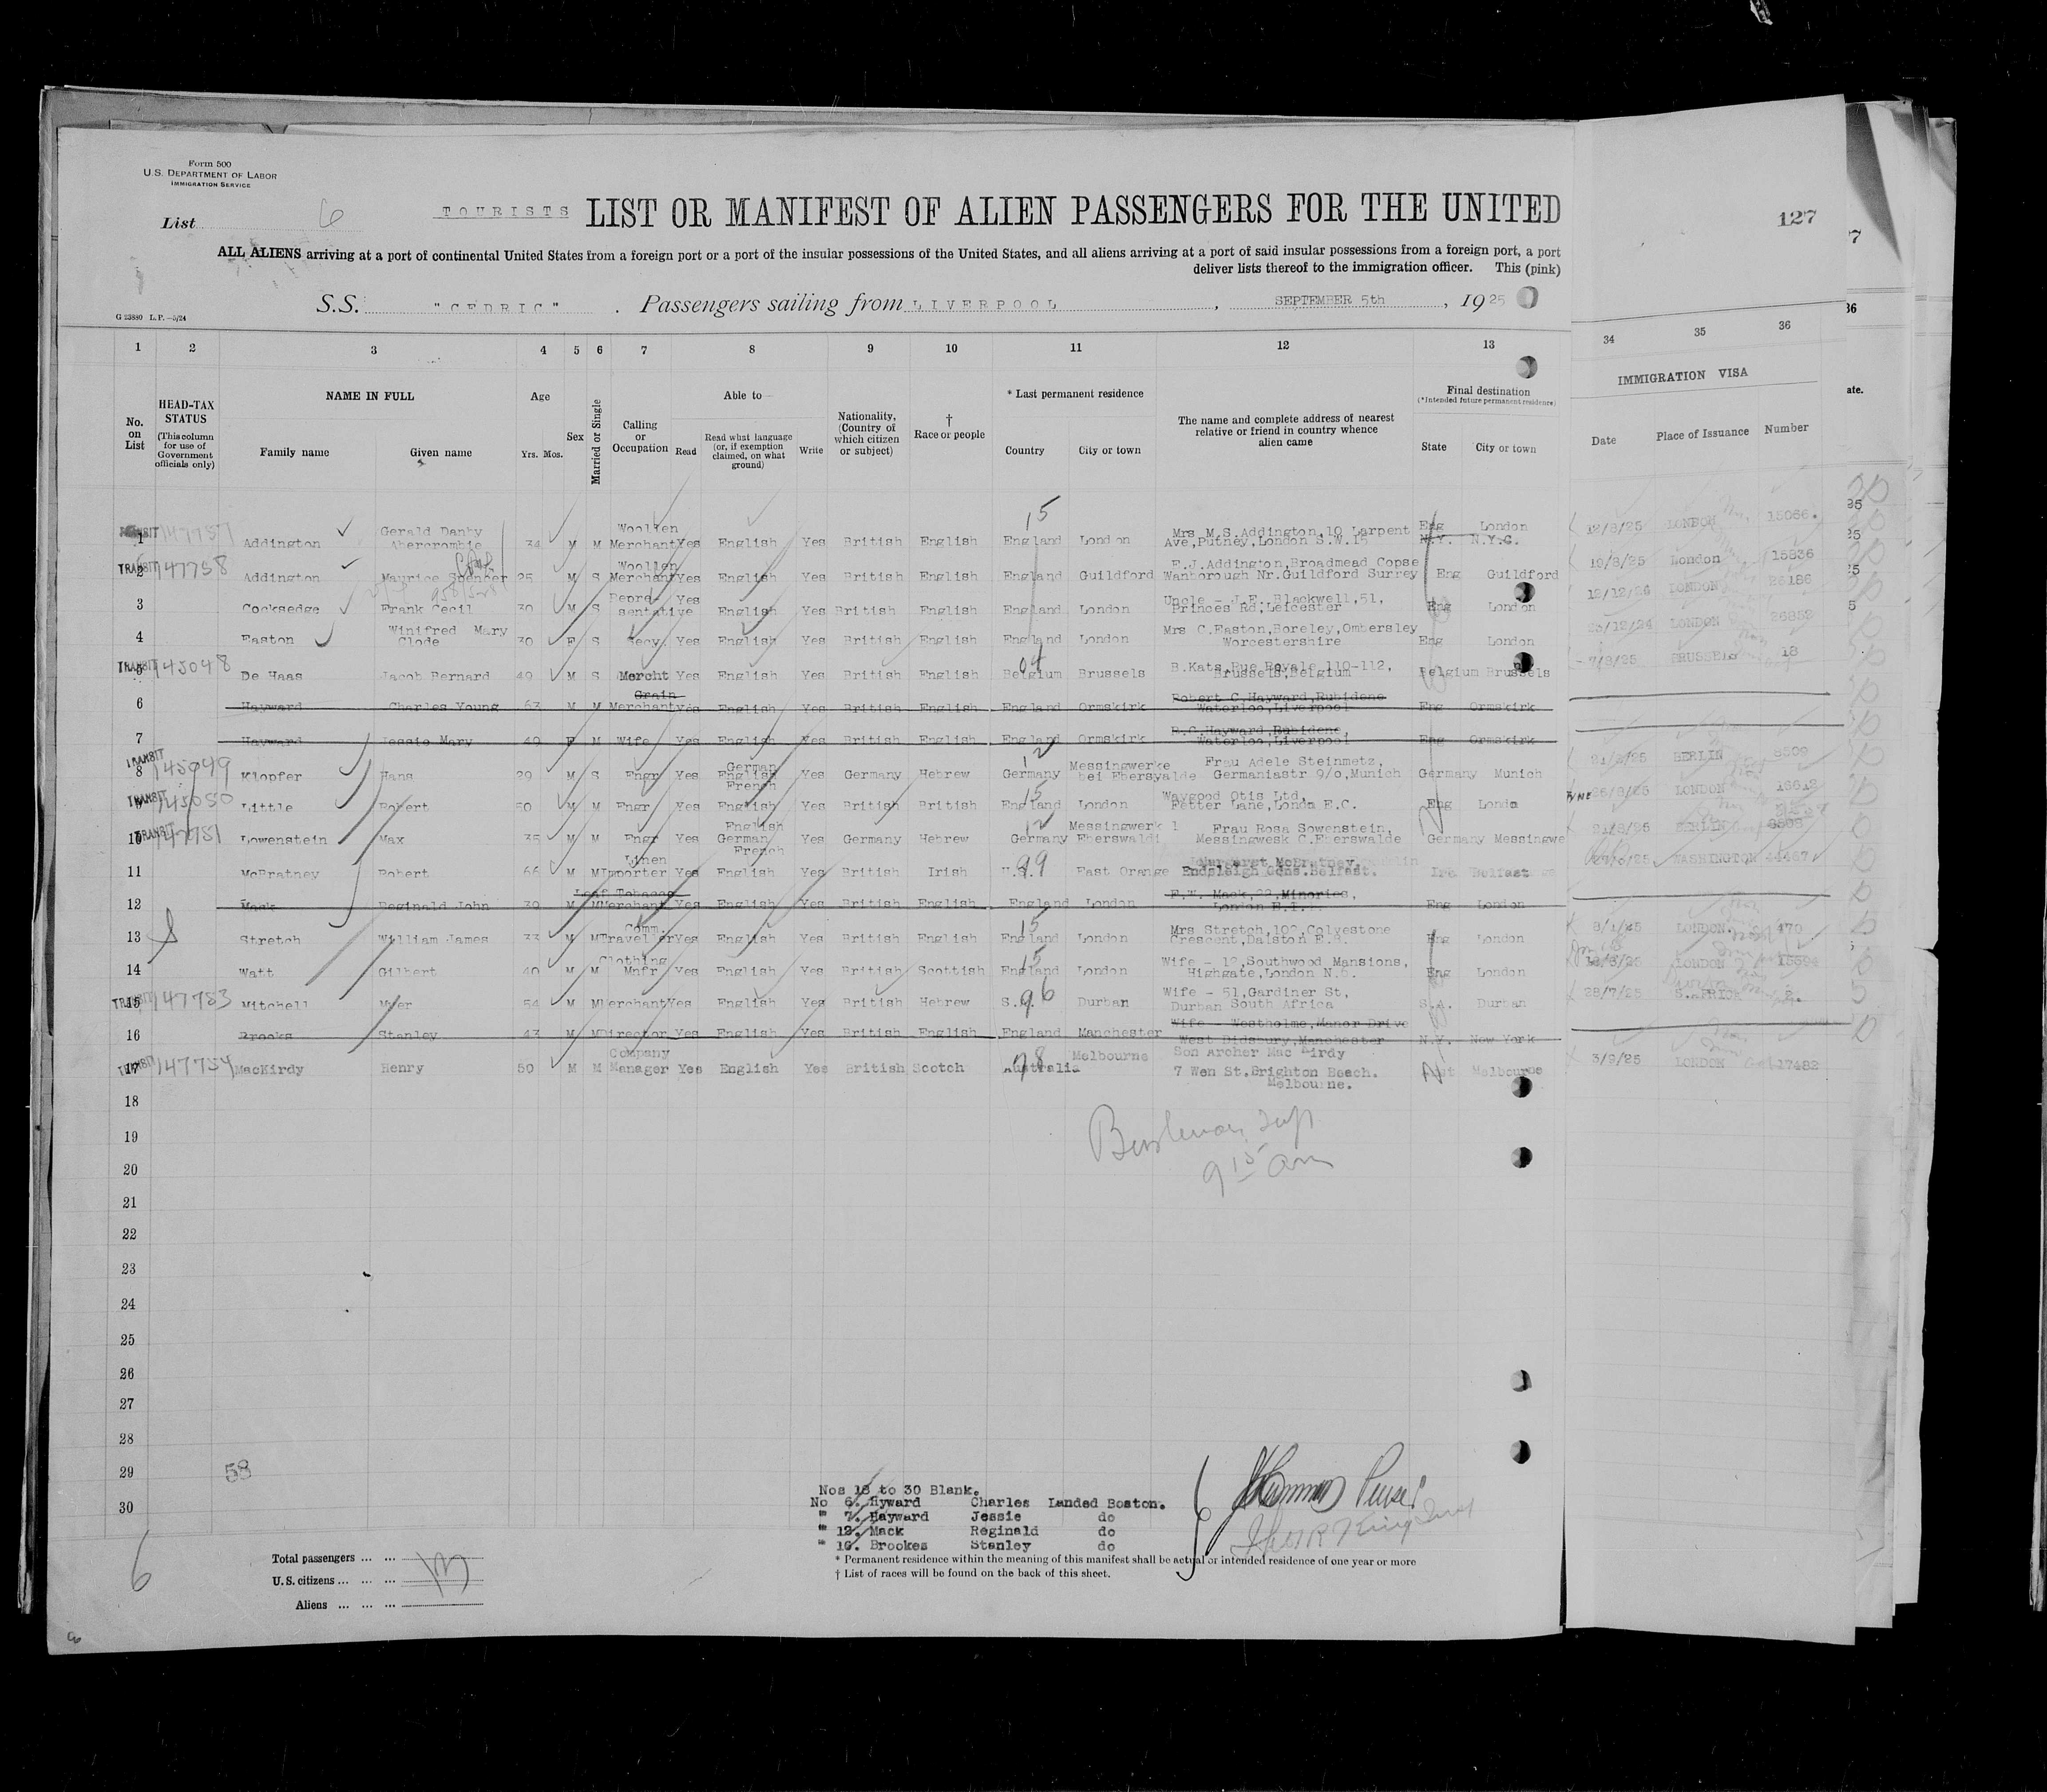 Form 500
U.S. DEPARTMENT OF LABOR
IMMIGRATION SERVICE
List 6
TOURISTS LIST OR MANIFEST OF ALIEN PASSENGERS FOR THE UNITED
127
ALL ALIENS arriving at a port of continental United States from a foreign port or a port of the insular possessions of the United States, and all aliens arriving at a port of said insular possessions from a foreign port, a port
deliver lists thereof to the immigration officer. This (pink)
S.S. "CEDRIC". Passengers sailing from LIVERPOOL, SEPTEMBER 5th, 1925
G 23880 L.P.—5/24
1 2 3 4 5 6 7 8 9 10 11 12 13 34 35 36
No. on List
HEAD-TAX STATUS (This column for use of Government officials only)
NAME IN FULL
Family name Given name
Age
Yrs. Mos.
Sex
Married or Single
Calling or Occupation
Able to—
Read Read what language (or, if exemption claimed, on what ground) Write
Nationality, (Country of which citizen or subject)
† Race or people
* Last permanent residence
Country City or town
The name and complete address of nearest relative or friend in country whence alien came
Final destination
(*Intended future permanent residence)
State City or town
IMMIGRATION VISA
Date Place of Issuance Number
1 Addington Gerald Danby Abercrombie 34 M M Woollen Merchant Yes English Yes British English England London Mrs M.S.Addington,10 Larpent Ave,Putney,London S.W.15 Eng London N.Y. N.Y.C. 12/8/25 LONDON
TRANSIT 147758 2 Addington Maurice Spencer 25 M S Woollen Merchant Yes English Yes British English England Guildford E.J.Addington,Broadmead Copse Wanborough Nr.Guildford Surrey Eng Guildford 19/8/25 London 15836
3 Cocksedge Frank Cecil 30 M S Representative Yes English Yes British English England London Uncle - J.E. Blackwell,51, Princes Rd,Leicester Eng London LONDON 26186
4 Easton Winifred Mary Clode 30 F S Secy. Yes English Yes British English England London Mrs C.Easton,Boreley,Ombersley Worcestershire Eng London 23/12/24 LONDON 26852
TRANSIT 145048 5 De Haas Jacob Bernard 49 M S Mercht Yes English Yes British English Belgium Brussels B.Kats,Rue Royale 110-112, Brussels,Belgium Belgium Brussels 7/8/25 BRUSSELS 18
6 Hayward Charles Young 63 M M Grain Merchant Yes English Yes British English England Ormskirk Robert C.Hayward,Rubidene Waterloo,Liverpool Eng Ormskirk
7 Hayward Jessie Mary 49 F M Wife Yes English Yes British English England Ormskirk R.C.Hayward,Rubidene Waterloo,Liverpool Eng Ormskirk
TRANSIT 145049 8 Klopfer Hans 29 M S Engr Yes German English French Yes Germany Hebrew Germany Messingwerke bei Eberswalde Frau Adele Steinmetz, Germaniastr 9/o,Munich Germany Munich BERLIN 8509
TRANSIT 145050 9 Little Robert 50 M M Engr Yes English Yes British British England London Waygood Otis Ltd, Fetter Lane,Londn E.C. Eng Londn LONDON 16612
TRANSIT 10 Lowenstein Max 35 M M Engr Yes English German French Yes Germany Hebrew Germany Eberswaldi Frau Rosa Sowenstein, Messingwesk C.Eberswalde Germany Messingwe BERLIN 8508
11 McBratney Robert 66 M M Linen Importer Yes English Yes British Irish East Orange Margaret McBratney, Endsleigh Gdns.Belfast. Ire Belfast WASHINGTON 44467
12 Mack Reginald John 39 M M Leaf Tobacco Merchant Yes English Yes British English England London F.T. Mack,22,Minories, London E.1. Eng London
13 Stretch William James 33 M M Comm. Traveller Yes English Yes British English England London Mrs Stretch,102,Colvestone Crescent,Dalston E.8. Eng London 8/1/25 LONDON. 479
14 Watt Gilbert 40 M M Clothing Mnfr Yes English Yes British Scottish England London Wife - 12,Southwood Mansions, Highgate,London N.6. Eng London LONDON
TRANSIT 147783 15 Mitchell Myer 54 M M Merchant Yes English Yes British Hebrew S.A. Durban Wife - 51,Gardiner St, Durban South Africa S.A. Durban 28/7/25 S.AFRICA 2.
16 Brooks Stanley 43 M M Director Yes English Yes British English England Manchester Wife - Westholme,Manor Drive West Didsbury,Manchester N.Y. New York
TRANSIT 147754 17 MacKirdy Henry 50 M M Company Manager Yes English Yes British Scotch Australia Melbourne Son Archer Mac Kirdy 7 Wen St,Brighton Beach. Melbourne. Melbourne 3/9/25 LONDON 17482
18
19
20
21
22
23
24
25
26
27
28
29
30
9 15 am
58
Nos 18 to 30 Blank.
No 6. Hyward Charles Landed Boston.
" 7. Hayward Jessie do
" 12. Mack Reginald do
" 16. Brookes Stanley do
* Permanent residence within the meaning of this manifest shall be actual or intended residence of one year or more
† List of races will be found on the back of this sheet.
Total passengers ... ...
U.S. citizens ... ... ... 13
Aliens ... ... ...
6